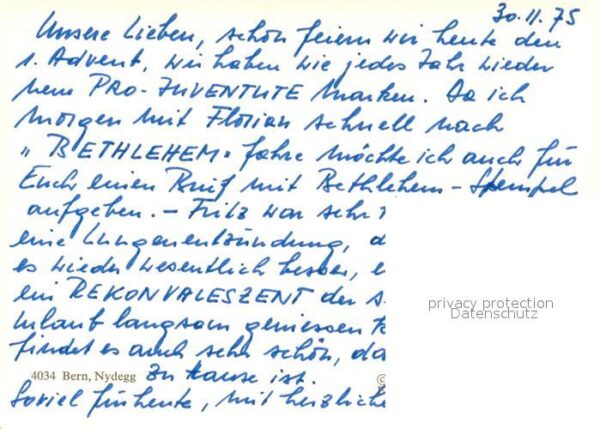 30.11.75
Unsere Lieben, schon feiern wir heute den
1. Advent, wir haben wie jedes Jahr wieder
neue PRO-JUVENTUTE Marken. Da ich
morgen mit Florian schnell nach
"BETHLEHEM" fahre möchte ich auch für
Euch einen Brief mit Bethlehem-Stempel
aufgeben. - Fritz war sehr
eine Lungenentzündung,
es wieder wesentlich besser,
ein REKONVALESZENT der
Urlaub langsam geniessen
findet es auch sehr schön,
zu Hause ist.
Soviel für heute, mit herzliche
4034 Bern, Nydegg
privacy protection
Datenschutz